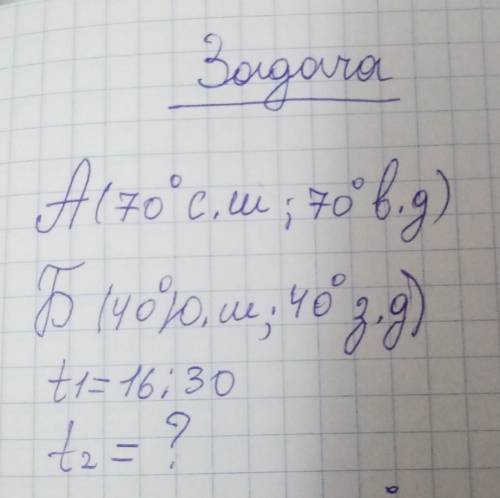 Задача
А(70° с.ш; 70° в.д)
Б(40°ю.ш; 40° з.д)
t1=16:30
t2=?